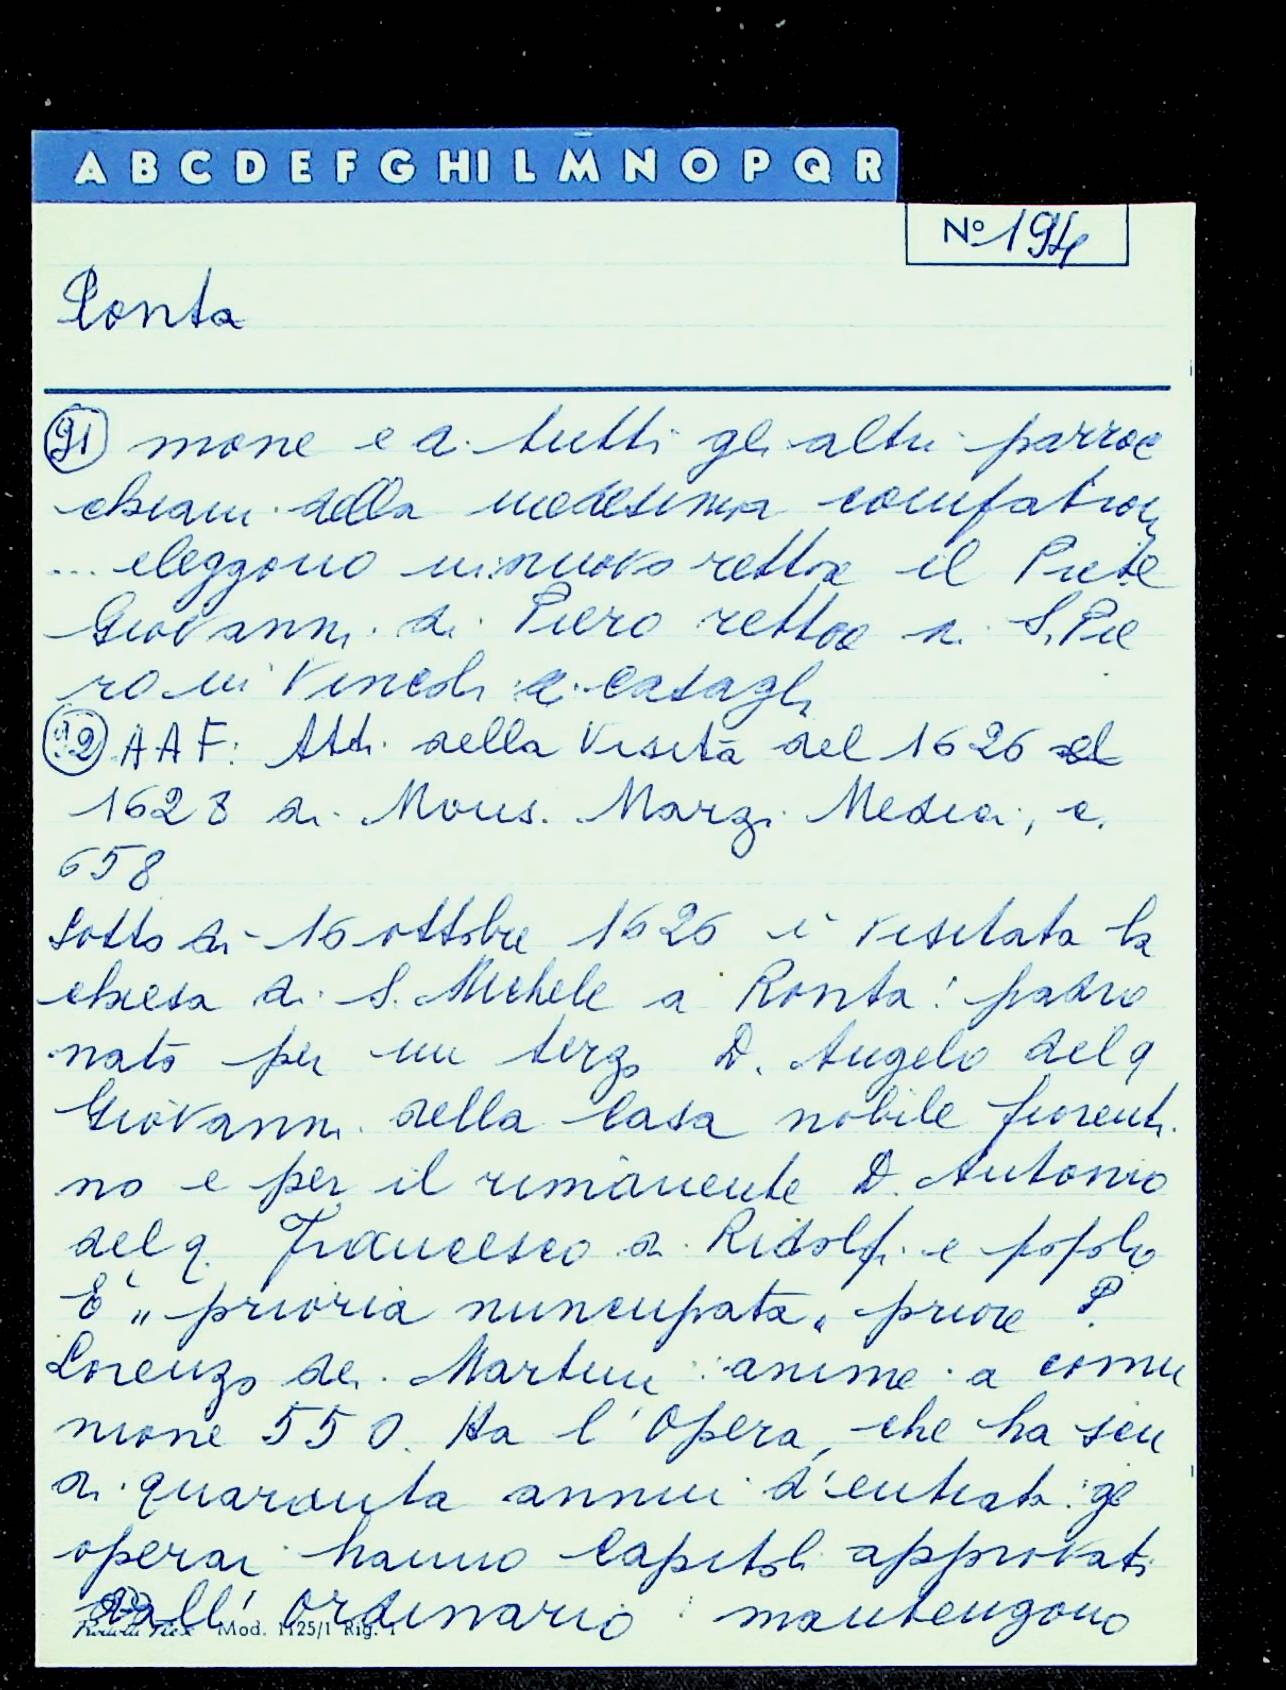 A B C D E F G HI L M N O P Q R
Nº 194
Ronta
91 mone e a tutti gli altri parroc
chiani della medesima
... eleggono in nuovo rettore il Prete
Giovanni di Piero rettore di S. Pie
ro in Vincoli a Casagli
92 AAF: Atti della Visita del 1626 al
1628 di Mons. Marzi Medici, c.
658
Sotto di 16 ottobre 1626 è visitata la
chiesa di S. Michele a Ronta: padro
nato per un terzo D. Angelo del q
Giovanni della Casa nobile fiorenti
no e per il rimanente D. Antonio
del q. Francesco di Ridolfi e popolo
E' "prioria nuncupata" priore P.
Lorenzo de Martini: anime a comu
nione 550. Ha l'Opera, che ha scu
di quaranta annui d'entrata: gl
operai hanno Capitoli approvati
dall' Ordinario: mantengono
Mod. 1125/1 Rig. 1